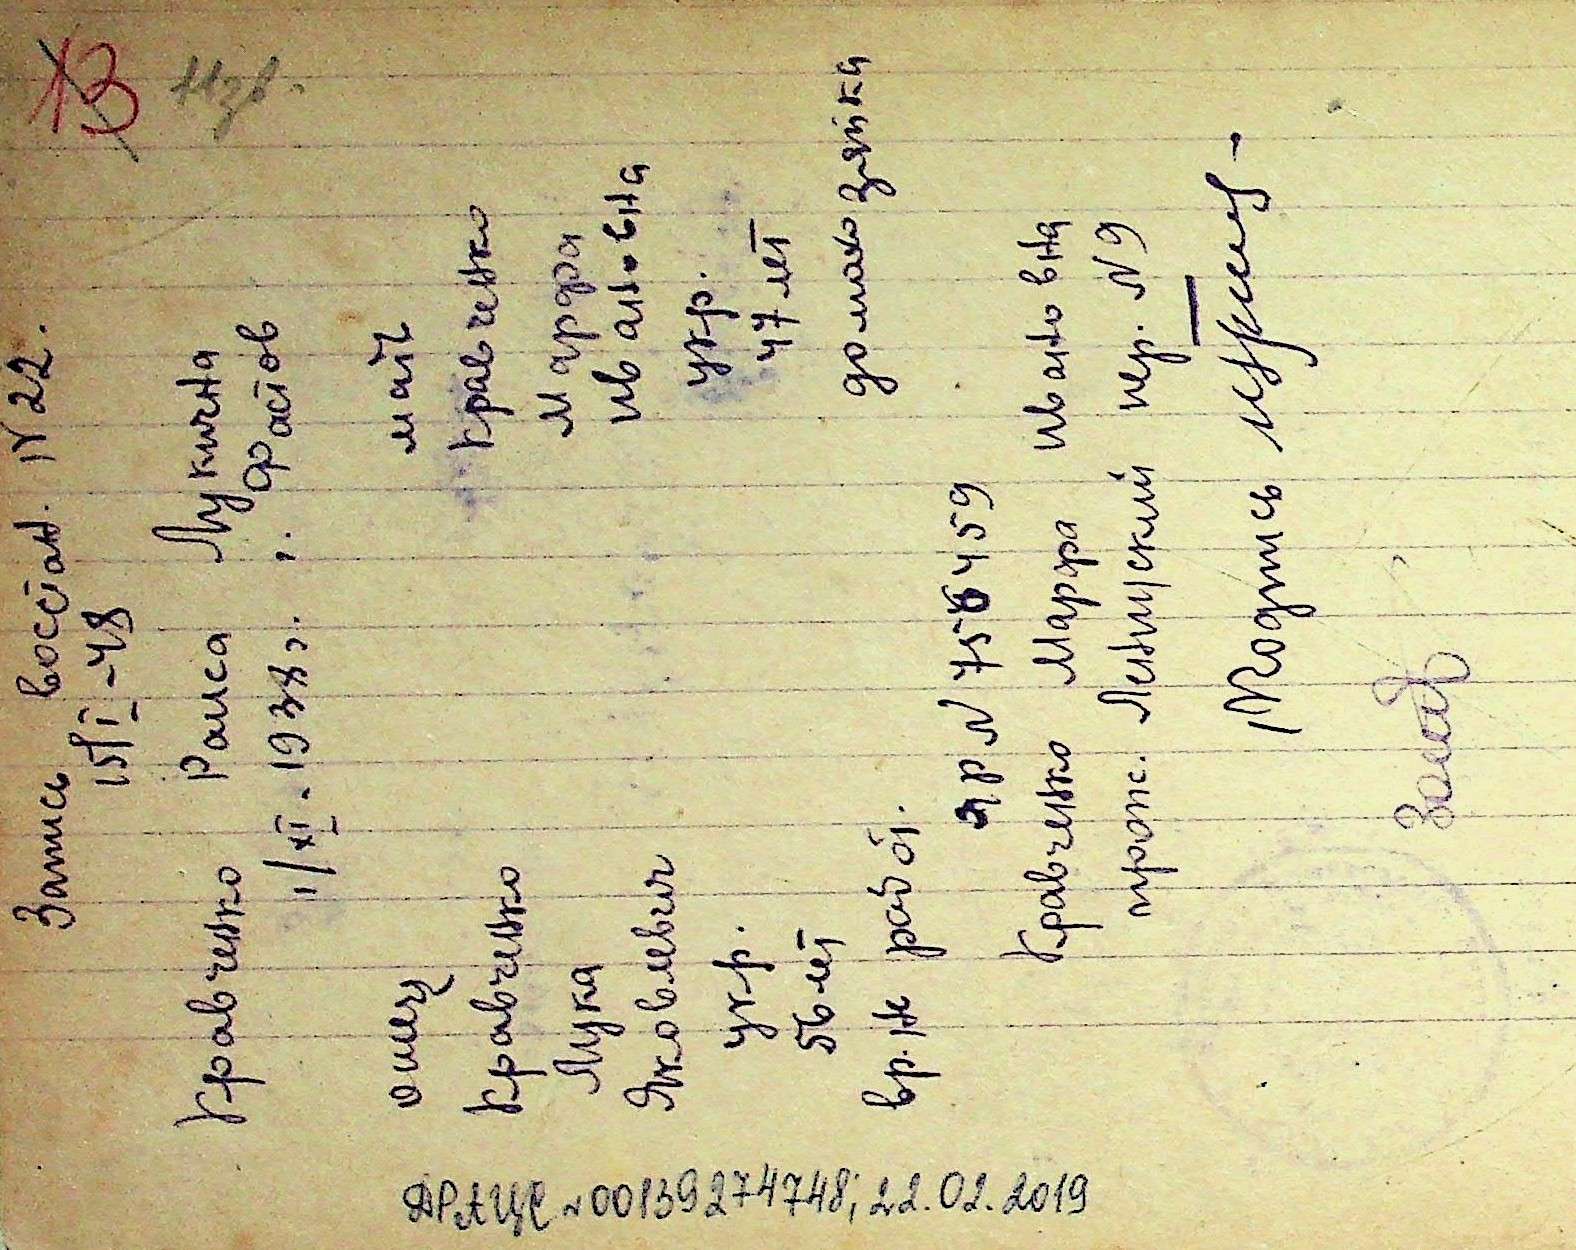 13 Изв.
Запись восстан. N 22.
15/I-48
Кравченко Раиса Лукична
11/XI. 1938 г. г. Фастов
отец мать
Кравченко Кравченко
Лука Марфа
Яковлевич Ивановна
укр. укр.
56 лет 47 лет
вр. н работ. домохозяйка
ЯР N 756459
Кравченко Марфа Ивановна
проп. Ленинский пер. N 9
Подпись
ДРАЦС N 00139274748; 22.02.2019